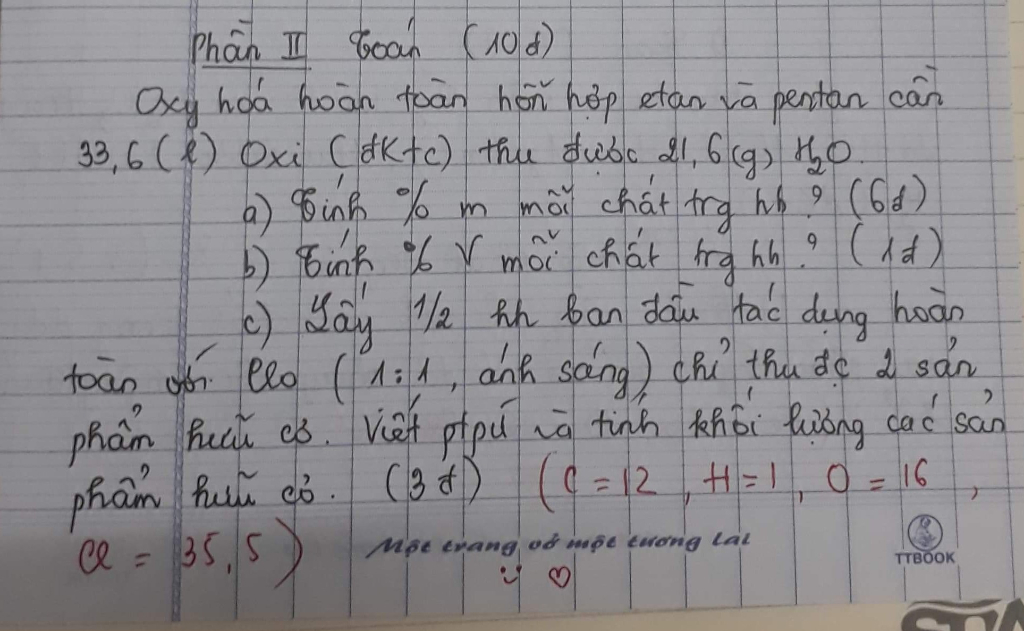 Phần II Toán (10đ)
Oxy hoá hoàn toàn hỗn hợp etan và pentan cần
33,6 (l) Oxi (đktc) thu được 21,6 (g) H₂O.
a) Tính % m mỗi chất trg hh? (6đ)
b) Tính % V mỗi chất trg hh? (1đ)
c) Lấy 1/2 hh ban đầu tác dụng hoàn
toàn với Clo (1:1, ánh sáng) chỉ thu đc 2 sản
phẩm hữu cơ. Viết ptpứ và tính khối lượng các sản
phẩm hữu cơ. (3đ) (C = 12, H = 1, O = 16,
Cl = 35,5)
Một trang vở một tương lai
TTBOOK